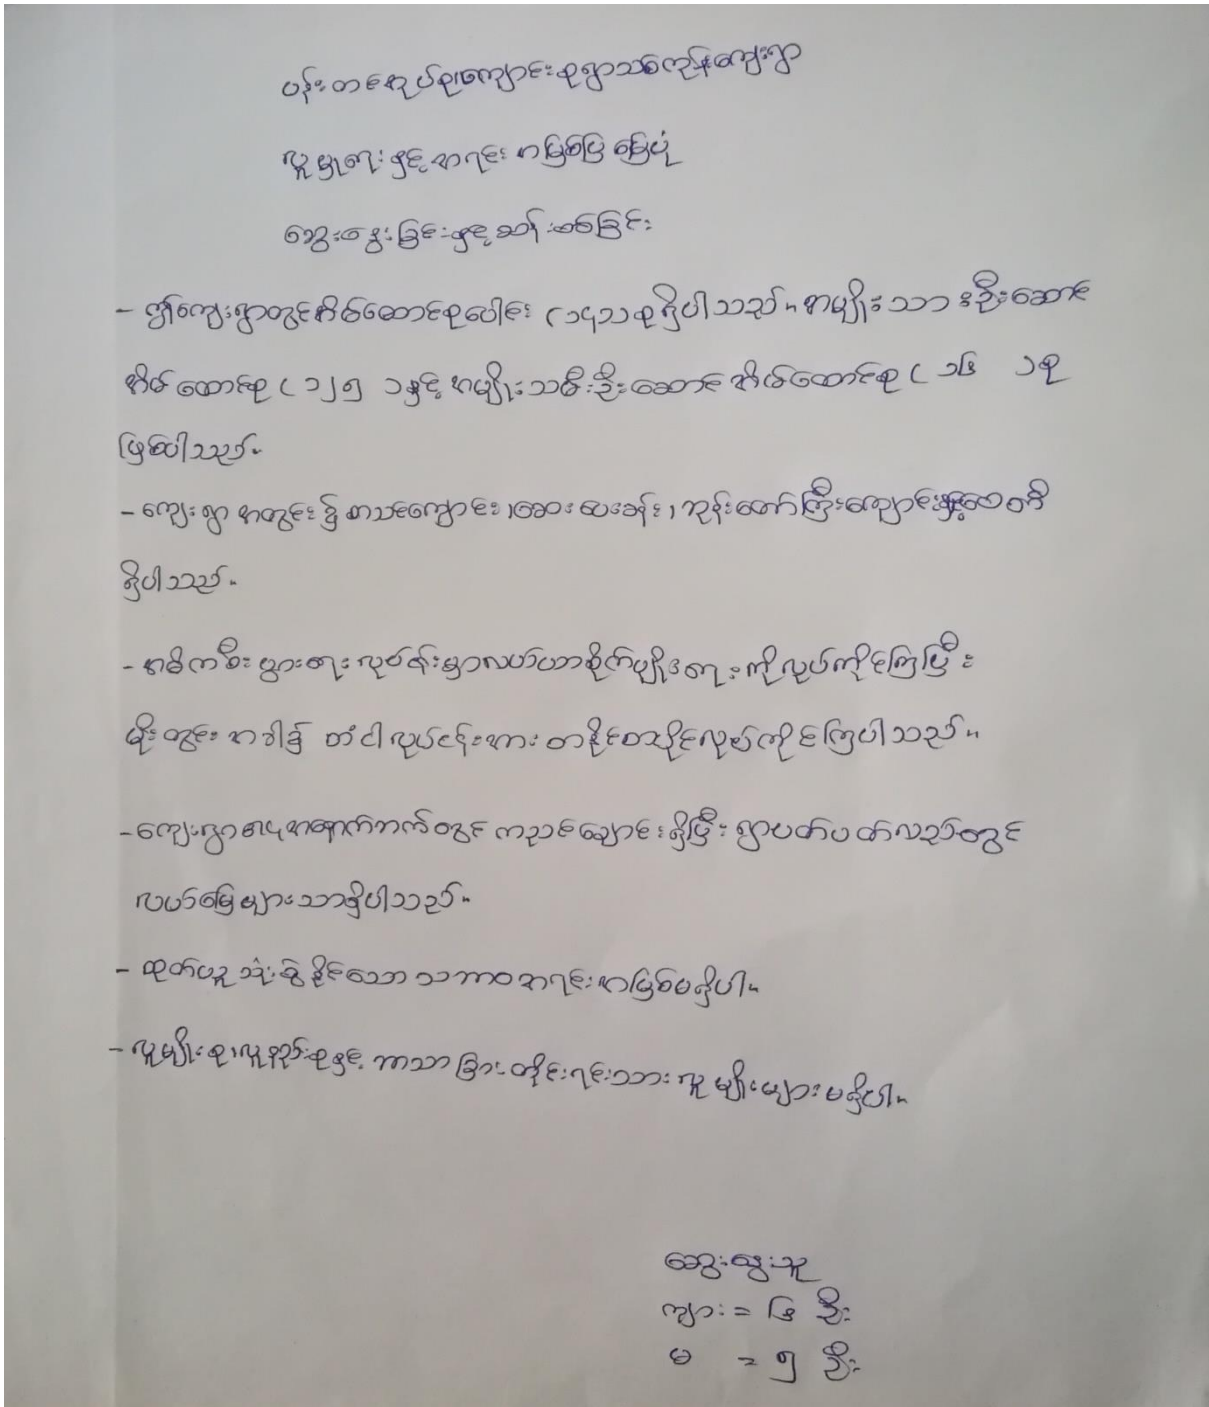 ပန်းတစ်အုပ်စု၊ကျောင်းစုရွာသစ်ကုန်းကျေးရွာ
လူမှုရေးနှင့်အရင်းအမြစ်ပြမြေပုံ
ဆွေးနွေးခြင်းနှင့်ဆန်းစစ်ခြင်း
- ဤကျေးရွာတွင်အိမ်ထောင်စုပေါင်း (၁၄၁)စုရှိပါသည်။ အမျိုးသားဦးဆောင်
အိမ်ထောင်စု (၁၂၅ )နှင့်အမျိုးသမီးဦးဆောင်အိမ်ထောင်စု (၁၆ )စု
ဖြစ်ပါသည်။
- ကျေးရွာအတွင်း၌စာသင်ကျောင်း၊ဆေးပေးခန်း၊ဘုန်းတော်ကြီးကျောင်းနှင့်စေတီ
ရှိပါသည်။
- အဓိကစီးပွားရေးလုပ်ငန်းမှာလယ်ယာစိုက်ပျိုးရေးကိုလုပ်ကိုင်ကြပြီး
မိုးတွင်းအခါ၌ တံငါလုပ်ငန်းအားတနိုင်တပိုင်လုပ်ကိုင်ကြပါသည်။
- ကျေးရွာ၏အနောက်ဘက်တွင်ကညင်ချောင်းရှိပြီးရွာပတ်ပတ်လည်တွင်
လယ်မြေများသာရှိပါသည်။
- ထုတ်ယူသုံးစွဲနိုင်သောသဘာဝအရင်းအမြစ်မရှိပါ။
- လူမျိုးစု၊လူနည်းစုနှင့်ဘာသာခြားတိုင်းရင်းသားလူမျိုးများမရှိပါ။
ဆွေးနွေးသူ
ကျား = ၆ ဦး
မ = ၅ ဦး